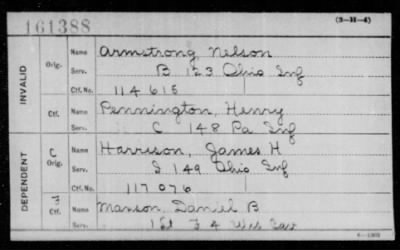 161388
(3-H-4)
INVALID
Orig.
Name Armstrong Nelson
Serv. B 123 Ohio Inf
Ctf. No. 114615
Ctf.
Name Pennington, Henry
Serv. C 148 Pa Inf
DEPENDENT
C
Orig.
Name Harrison, James H
Serv. 149 Ohio Inf
Ctf. No. 117076
Ctf.
Name Manson, Daniel B
Serv. F 4 Wis Cav